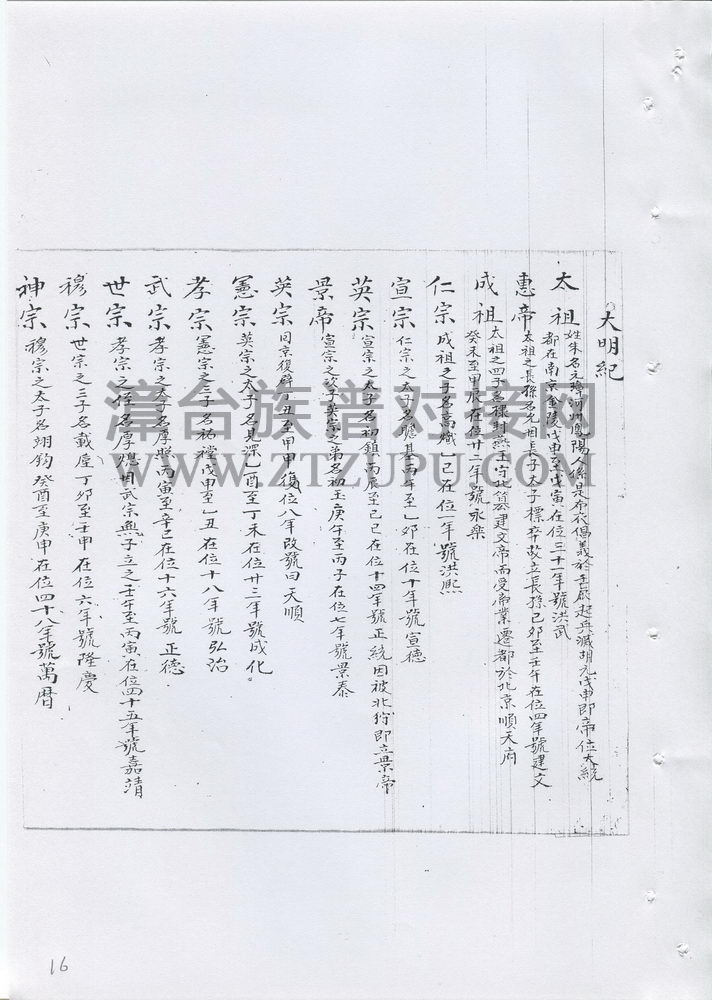 大明紀
太祖 姓朱名元璋河州鳳陽人係是布衣倡義於壬辰起兵滅胡元戊申即帝位大統
都在南京金陵戊申至戊寅在位三十一年號洪武
惠帝 太祖之長孫名允炆長子太子標卒故立長孫己卯至壬午在位四年號建文
成祖 太祖之四子名棣封燕王守北建文帝而受帝業遷都於北京順天府
癸未至甲辰在位廿二年號永樂
仁宗 成祖之子名高熾乙巳在位一年號洪熙
宣宗 仁宗之太子名瞻基丙午至乙卯在位十年號宣德
英宗 宣宗之太子名初鎮丙辰至己巳在位十四年號正統因被北狩即立景帝
景帝 宣宗之次子英宗之弟名初玉庚午至丙子在位七年號景泰
英宗 回京復辟丁丑至甲申復位八年改號曰天順
憲宗 英宗之太子名見深乙酉至丁未在位廿三年號成化。
孝宗 憲宗之三子名祐樘戊申至乙丑在位十八年號弘治
武宗 孝宗之太子名厚照丙寅至辛巳在位十六年號正德
世宗 孝宗之侄名厚熜因武宗無子立之壬午至丙寅在位四十五年號嘉靖
穆宗 世宗之三子名載垕丁卯至壬申在位六年號隆慶
神宗 穆宗之太子名翊鈞癸酉至庚申在位四十八年號萬曆
漳台族谱对接网
WWW.ZTZUPU.COM
16